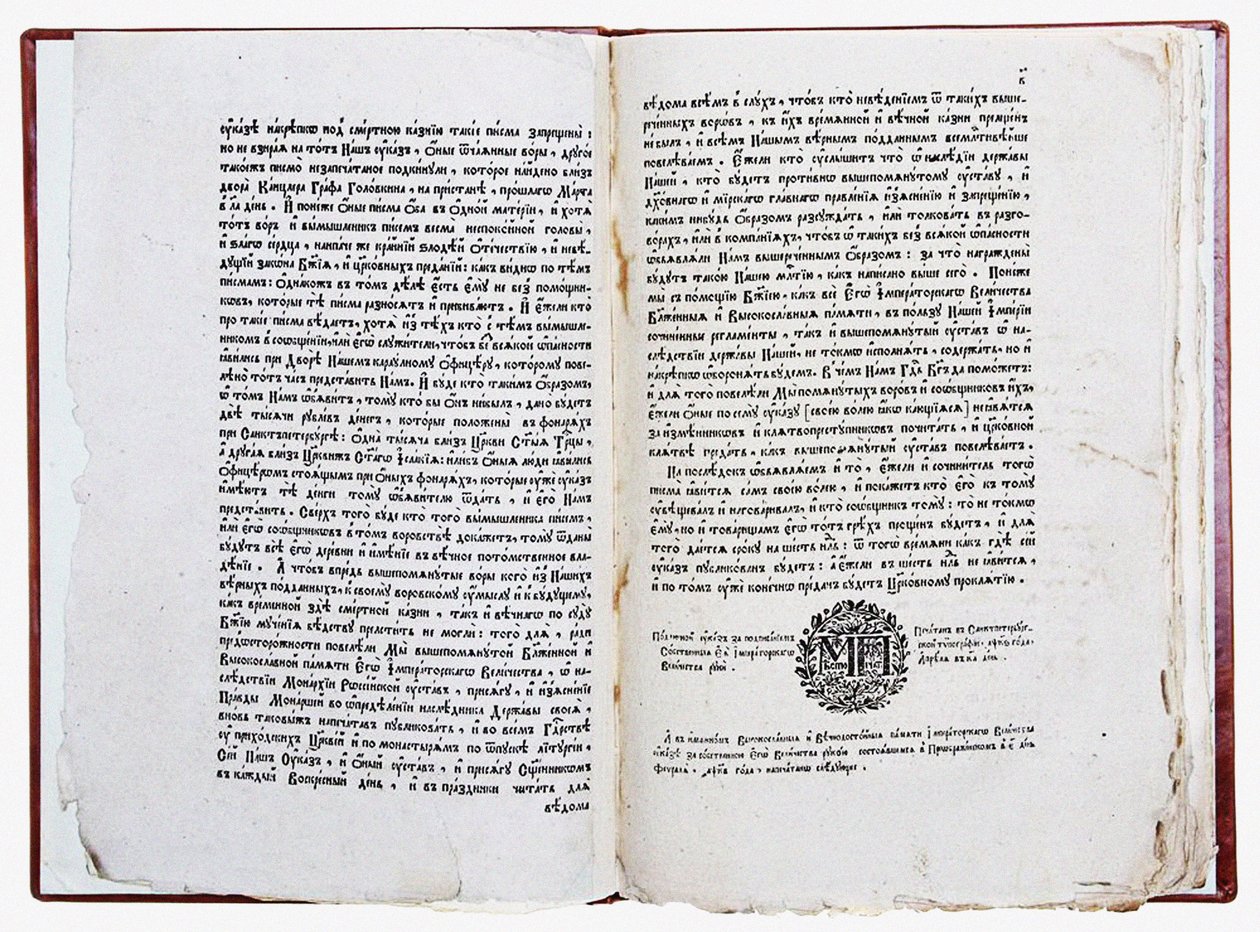 ᲂу҆ка́зѣ накрѣпкѡ под̾ сме́ртною ка́знїю такі́е пи́сма запрещены̀ :
но не взира́я на то́тъ На́шъ ᲂу҆ка́зъ , ѻ҆́ные ѿча́янные во́ры , друго́е
тако́ежъ письмо̀ незапеча́таное подки́нули , кото́рое на́йдено бли́зъ
двора̀ Ка́нцлера Гра́фа Голо́вкина , на при́станѣ , про́шлагѡ Ма́рта
в ла де́нь . И҆ поне́же ѻ҆́ные пи́сма ѻ҆́ба въ ѻ҆дно́й мате́рїи , и҆ хотѧ̀
то́тъ во́ръ и҆ вымы́шленикъ пи́семъ весма̀ неспоко́йной головы̀ ,
и҆ ѕла́гѡ се́рдца , наипа́че же кра́йнїй ѕлодѣ́й ѻ҆те́чествїю , и҆ невѣ́-
дущїй зако́на Бж҃їѧ , и҆ цр҃ко́вныхъ преда́нїй : ка́къ ви́днѡ по тѣ́мъ
писма́мъ : Ѻ҆дна́кожъ въ то́мъ дѣ́лѣ є҆́сть є҆мꙋ̀ не без̾ помо́щни-
ковъ , кото́рые тѣ̀ пи́сма разно́сѧтъ и҆ прибива́ютъ . И҆ є҆́жели кто̀
про такі́е пи́сма вѣ́даетъ , хотѧ̀ и҆з̾ тѣ́хъ кто̀ с̾ тѣ́мъ вымы́шле-
никомъ в̾ соѡбще́нїи , и҆лѝ є҆гѡ̀ служи́тели , что́бъ без̾ всѧ́кой ѡ҆па́сности
ꙗ҆ви́лись при Дворѣ̀ На́шемъ карау́лному Ѻ҆фице́ру , кото́рому пове-
лѣ́но то́тъ ча́съ предста́вить На́мъ . И҆ бу́де кто̀ таки́мъ ѻ҆́бразомъ ,
ѡ҆ то́мъ На́мъ ѡ҆бъѧ́витъ , тому̀ кто̀ бы ѻ҆́нъ не́былъ , дано̀ бу́детъ
двѣ̀ ты́сѧчи рубле́въ де́негъ , кото́рые поло́жены въ фонарѧ́хъ
при Санктъпетербу́ргѣ : ѻ҆дна̀ ты́сѧча бли́зъ Цр҃кви Ст҃ы́ѧ Трⷪ҇цы ,
а҆ друга́ѧ бли́зъ Цр҃кви́жъ Ст҃а́гѡ І҆саа́кїѧ : и҆ли́бъ ѻ҆́ныѧ лю́ди ꙗ҆ви́лись
Ѻ҆фице́ромъ стоѧ́щымъ при ѻ҆́ныхъ фонарѧ́хъ , кото́рые ᲂу҆жѐ ᲂу҆ка́зъ
и҆мѣ́ютъ тѣ̀ де́нги тому̀ ѡ҆бъѧви́телю ѿда́ть , и҆ є҆го̀ На́мъ
предста́вить . Све́рхъ того̀ бу́де кто̀ того̀ вымы́шленика пи́семъ ,
и҆лѝ є҆гѡ̀ соѡбщникѡвъ в̾ то́мъ воровствѣ̀ дока́жетъ , тому̀ ѿданы̀
бу́дутъ всѣ̀ є҆гѡ̀ дере́вни и҆ и҆мѣ́нїе въ вѣ́чное пото́мственное вла-
дѣ́нїе . А҆ что́бъ впре́дь вышепомѧ́нутые во́ры кого̀ и҆з̾ На́шихъ
вѣ́рныхъ по́дданныхъ , к̾ своему̀ воровско́му ᲂу҆мы́слу и҆ к̾ бу́дущему ,
ка́къ вре́менной здѣ̀ сме́ртной ка́зни , та́къ и҆ вѣ́чнагѡ по суду̀
Бж҃їю муче́нїѧ бѣ́дству прелсти́ть не моглѝ : того̀ для̀ , ра́ди
предѡсторо́жности повелѣ́ли Мы̀ вышепомѧ́нутой Бл҃же́нной и҆
Высокосла́вной па́мѧти Є҆гѡ̀ І҆мпера́торскагѡ Вели́чества , ѡ҆ на-
слѣ́дствїи Мона́рхїи Рѡссі́йской ᲂу҆ста́въ , присѧ́гу , и҆ и҆з̾ѧсне́нїе
Пра́вды Мона́ршей во ѡ҆предѣле́нїи наслѣ́дника Держа́вы своеѧ̀ ,
вно́вь таковы́жъ напеча́тавъ публикова́ть , и҆ во все́мъ Гдⷭ҇рствѣ
ᲂу҆ прихо́дскихъ Цр҃кве́й и҆ по монастырѧ́мъ по ѿпу́скѣ лїтургі́и ,
Се́й На́шъ Оу҆ка́зъ , и҆ ѻ҆́ный ᲂу҆ста́въ , и҆ присѧ́гу Сщ҃е́нникомъ
въ ка́ждый Воскре́сный де́нь , и҆ въ пра́здники чита́ть для̀
вѣ́дома
в҃
вѣ́дома всѣ́мъ в̾ слу́хъ , что́бъ кто̀ невѣ́денїемъ ѿ таки́хъ выше-
рече́нныхъ воро́въ , къ и҆́хъ времѧ́нной и҆ вѣ́чной ка́зни прельще́нъ
не́былъ , и҆ всѣ́мъ На́шымъ вѣ́рнымъ по́дданнымъ всемлⷭ҇тивѣ́йше
повелѣва́емъ . Є҆́жели кто̀ ᲂу҆слы́шитъ что̀ ѡ҆ наслѣ́дїи держа́вы
На́шей , кто̀ бу́детъ проти́внѡ вышепомѧ́нутому ᲂу҆ста́ву , и҆
дх҃о́внагѡ и҆ мі́рскагѡ гла́внагѡ правле́нїѧ и҆з̾ѧсне́нїю и҆ запреще́нїю ,
каки́мъ нибу́дь ѻ҆́бразомъ разсужда́ть , и҆лѝ толкова́ть въ разго-
во́рахъ , и҆лѝ в̾ компанїѧхъ , что́бъ ѡ҆ таки́хъ без̾ всѧ́кой ѡ҆па́сности
ѡ҆бъѧвлѧ́ли На́мъ вышерече́ннымъ ѻ҆́бразомъ : за что̀ награждены̀
бу́дутъ тако́ю На́шею млⷭ҇тїю , ка́къ напи́сано вы́ше сегѡ̀ . Поне́же
мы̀ съ по́мощїю Бж҃їею , ка́къ всѣ̀ Є҆гѡ̀ І҆мпера́торскагѡ Вели́чества
Бл҃же́нныѧ и҆ Высокосла́вныѧ па́мѧти , въ по́льзу На́шей И҆мпе́рїи
сочине́нные регла́менты , та́къ и҆ вышепомѧ́нутый ᲂу҆ста́въ ѡ҆ на-
слѣ́дствїи держа́вы На́шей , не то́кмѡ и҆сполнѧ́ть , содержа́ть , но и҆
накрѣ́пкѡ ѡ҆боронѧ́ть бу́демъ . В̾ че́мъ На́мъ Гдⷭ҇ь Бг҃ъ да помо́жетъ :
и҆ для̀ того̀ повелѣ́ли Мы̀ помѧ́нутыхъ воро́въ и҆ соѡбщниковъ и҆́хъ ,
є҆́жели ѻ҆́ные по сему̀ ᲂу҆ка́зу [ свое́ю во́лею ꙗ҆́кѡ ка́ющїисѧ ] неꙗ҆вѧ́тсѧ
за и҆змѣ́нниковъ и҆ клѧтвопресту́пниковъ почита́ть , и҆ цр҃ко́вной
клѧ́твѣ преда́ть , ка́къ вышепомѧ́нутый ᲂу҆ста́въ повелѣва́етъ .
На послѣ́докъ ѡ҆бъѧвлѧ́емъ и҆ то̀ , є҆́жели и҆ сочини́тель тогѡ̀
писма̀ ꙗ҆ви́тсѧ са́мъ свое́ю во́лею , и҆ пока́жетъ кто̀ є҆го̀ к̾ тому̀
ᲂу҆вѣщева́лъ и҆ нагова́ривалъ , и҆ кто̀ соѡбщникъ тому̀ : то̀ не то́кмѡ
є҆му̀ , но и҆ това́рищамъ є҆гѡ̀ то́тъ грѣ́хъ проще́нъ бу́детъ , и҆ для̀
того̀ дае́тсѧ сро́ку на ше́сть нⷣль : ѿ тогѡ̀ вре́мѧни ка́къ гдѣ̀ се́й
ᲂу҆ка́зъ публико́ванъ бу́детъ : а҆ є҆́жели въ ше́сть нⷣль не ꙗ҆ви́тсѧ ,
и҆ по то́мъ ᲂу҆жѐ коне́чнѡ пре́данъ бу́детъ Цр҃ко́вному проклѧ́тїю .
По́длинной ᲂу҆ка́зъ за подписа́нїемъ
Со́бственныѧ Є҆ѧ̀ І҆мпера́торскагѡ
Вели́чества рукѝ .
Печа́танъ въ Санктпетербу́рг-
ской тѵпогра́фїи , ҂аѱк҃з го́да ,
А҆прѣ́лѧ въ к҃а де́нь .
А҆ въ и҆мѧнно́мъ Высокосла́вныѧ и҆ Вѣчнодосто́йныѧ па́мѧти І҆мпера́торскагѡ Вели́чества
ᲂу҆ка́зѣ за со́бственною Є҆гѡ̀ Вели́чества руко́ю состоѧ́вшемсѧ в̾ Преѡбраже́нскомъ в̾ є҃ де́нь
Февралѧ̀ , ҂аѱк҃в го́да , напеча́танѡ слѣ́дующее .